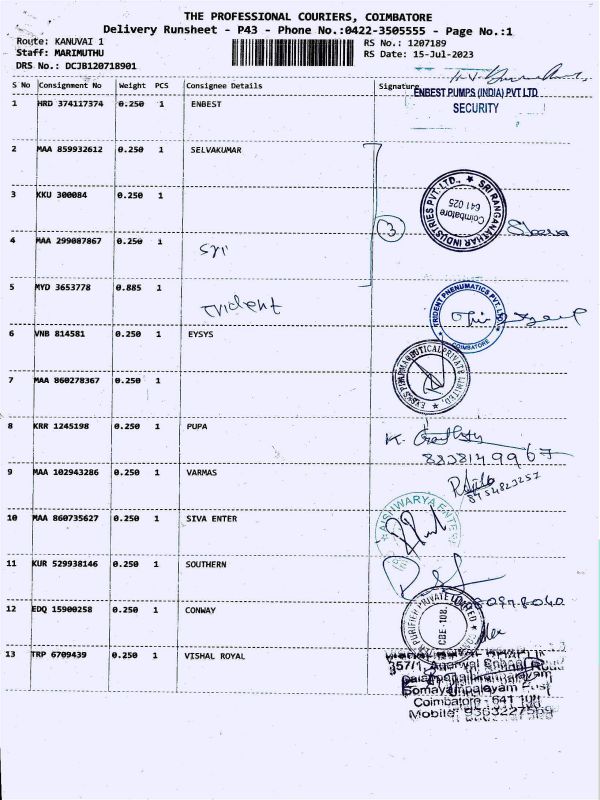 THE PROFESSIONAL COURIERS, COIMBATORE
Delivery Runsheet - P43 - Phone No.:0422-3505555 - Page No.:1
Route: KANUVAI 1 RS No.: 1207189
Staff: MARIMUTHU RS Date: 15-Jul-2023
DRS No.: DCJB120718901
S No Consignment No Weight PCS Consignee Details Signature
1 HRD 374117374 0.250 1 ENBEST
ENBEST PUMPS (INDIA) PVT LTD
SECURITY
2 MAA 859932612 0.250 1 SELVAKUMAR
3 KKU 300084 0.250 1
SRI RANGANATHAR INDUSTRIES PVT. LTD.,
Coimbatore
641 025
3
4 MAA 299087867 0.250 1 Sri
5 MYD 3653778 0.885 1 Trident
TRIDENT PNEUMATICS PVT. LTD.
COIMBATORE
6 VNB 814581 0.250 1 EYSYS
PRIVATE LIMITED
7 MAA 860278367 0.250 1
8 KRR 1245198 0.250 1 PUPA
K.
8838149967
9 MAA 102943286 0.250 1 VARMAS
10 MAA 860735627 0.250 1 SIVA ENTER
AISHWARYA ENTE
11 KUR 529938146 0.250 1 SOUTHERN
12 EDQ 15900258 0.250 1 CONWAY
PURIFIER PRIVATE LIMITED
CBE-108.
13 TRP 6709439 0.250 1 VISHAL ROYAL
357/1, Agarwal Road
Somayampalayam Post
Coimbatore - 641
Mobile: